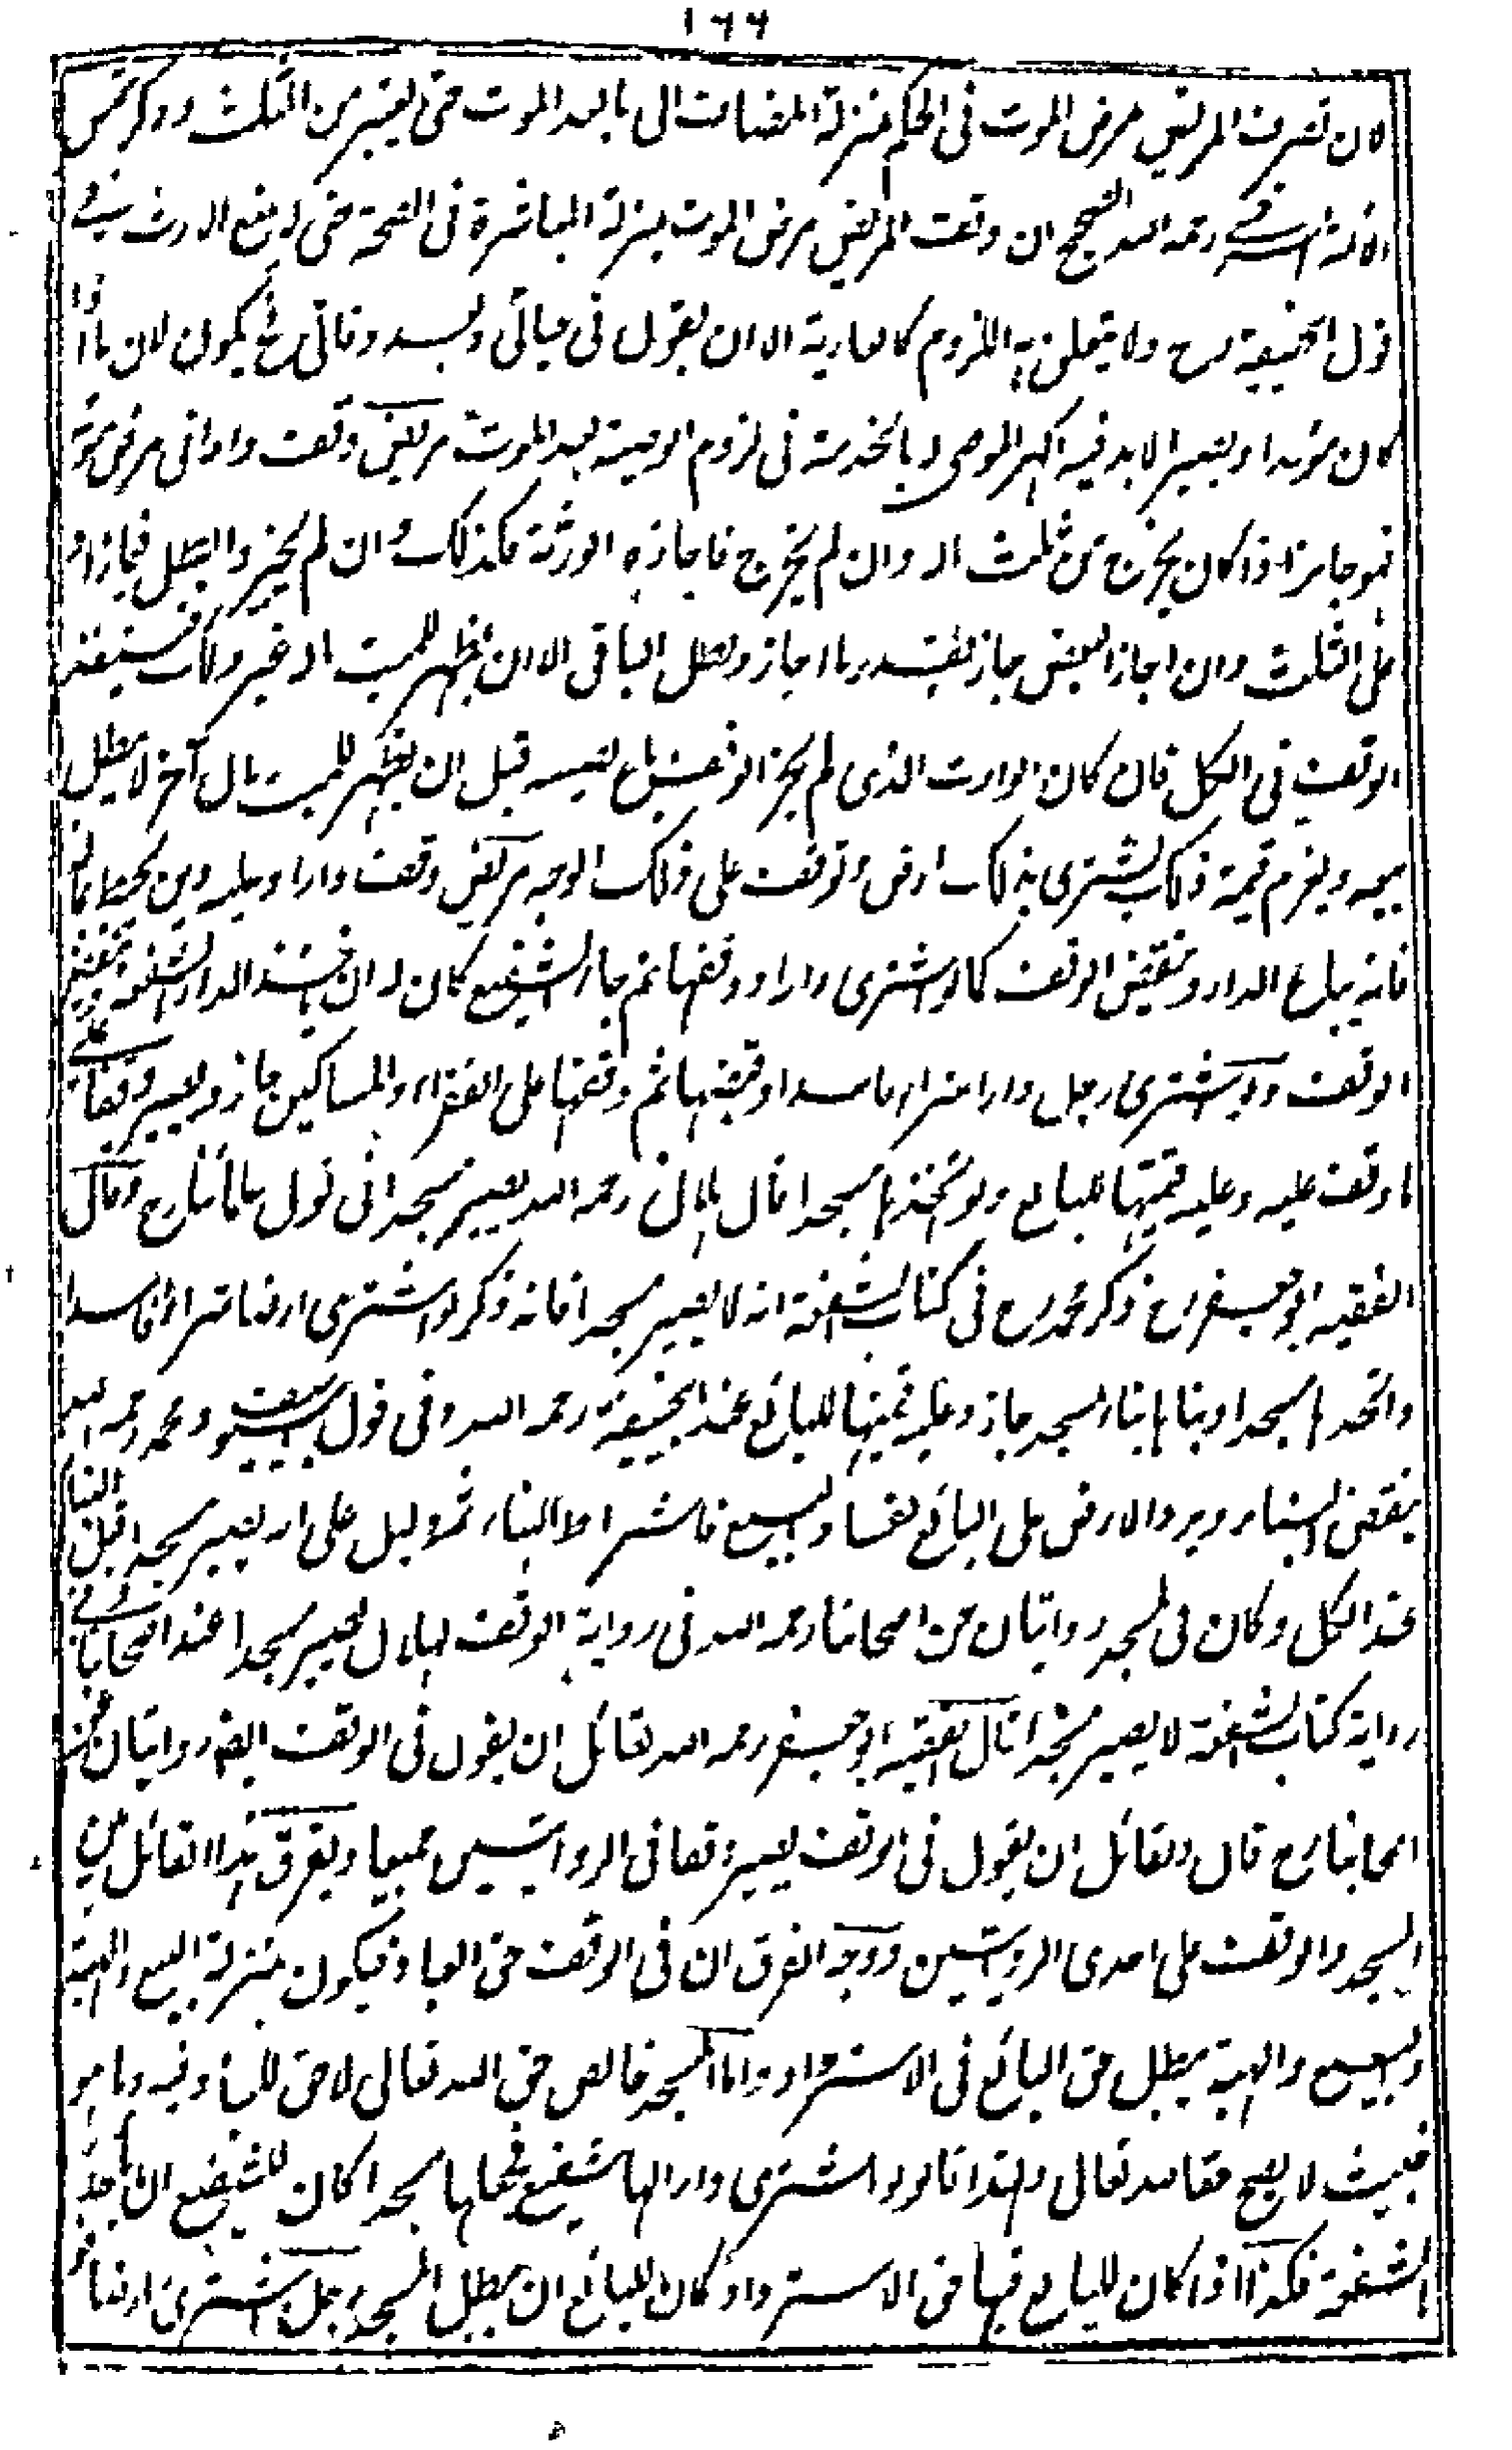 ١٦٦
لان تصرف المريض مرض الموت فى الحكم بمنزلة المضاف الى ما بعد الموت حتى يعتبر من الثلث وذكر شمس
الائمة السرخسى رحمه الله الصحيح ان وقف المريض مرض الموت بمنزلة المباشرة فى الصحة حتى لا يمنع الارث فى
قول ابيحنيفة رح ولا يتعلق به اللزوم كالعارية الا ان يقول فى حياتى وبعد وفاتى فح يكون لازما اذا
كان مؤبدا ويصير الابد فيه كعمر الموصى له بالخدمة فى لزوم الوصية بعد الموت مريض وقف دارا فى مرض موته
فهو جائز اذا كان يخرج من ثلث المال وان لم يخرج فاجازه الورثة فكذلك وان لم يجيزوا بطل فيما زاد
على الثلث وان اجاز البعض جاز بقدر ما اجاز وبطل الباقى الا ان يظهر للميت مال غير ذلك فينفذ
الوقف فى الكل فان كان الوارث الذى لم يجز الوقف باع نصيبه قبل ان يظهر للميت مال آخر لا يبطل
بيعه ويغرم قيمة ذلك فيشترى بذلك ارض وتوقف على ذلك الوجه مريض وقف دارا وعليه دين يحيط بماله
فانه يباع الدار وينقض الوقف كما لو اشترى دارا ووقفها ثم جاء الشفيع كان له ان ياخذ الدار بالشفعة وينقض
الوقف ولو اشترى رجل دارا شراء فاسدا وقبضها ثم وقفها على الفقراء والمساكين جاز ويصير وقفا على
ما وقف عليه وعليه قيمتها للبايع ولو اتخذها مسجدا قال هلال رحمه الله يصير مسجدا فى قول علمائنا رح وقال
الفقيه ابو جعفر رح ذكر محمد رح فى كتاب الشفعة انه لا يصير مسجدا فانه ذكر لو اشترى ارضا شراء فاسدا
واتخذها مسجدا وبناها بناء المسجد جاز وعليه قيمتها للبائع عند ابيحنيفة رحمه الله وفى قول ابى يوسف ومحمد رحمه الله
ينقض البناء ويرد الارض على البائع لفساد البيع فاشتراط البناء ثمه دليل على انه لا يصير مسجدا قبل البناء
عند الكل وكان فى المسجد روايتان عن اصحابنا رحمه الله فى رواية الوقف لهلال يصير مسجدا عند اصحابنا وفى
رواية كتاب الشفعة لا يصير مسجدا قال الفقيه ابو جعفر رحمه الله لقائل ان يقول فى الوقف ايضا روايتان عن
اصحابنا رح قال ولقائل ان يقول فى الوقف يصير وقفا فى الروايتين جميعا ويفرق هذا القائل بين
المسجد والوقف على احدى الروايتين ووجه الفرق ان فى الوقف حق العباد فيكون بمنزلة البيع والهبة
وبالبيع والهبة يبطل حق البائع فى الاسترداد واما المسجد خالص حق الله تعالى لا حق للعباد فيه وما هو
خبيث لا يصح حقا لله تعالى ولهذا قالوا لو اشترى دارا لها شفيع فجعلها مسجدا كان للشفيع ان ياخذ
بالشفعة فكذا اذا كان للبايع فيها حق الاسترداد كان للبائع ان يبطل المسجد رجل اشترى ارضا